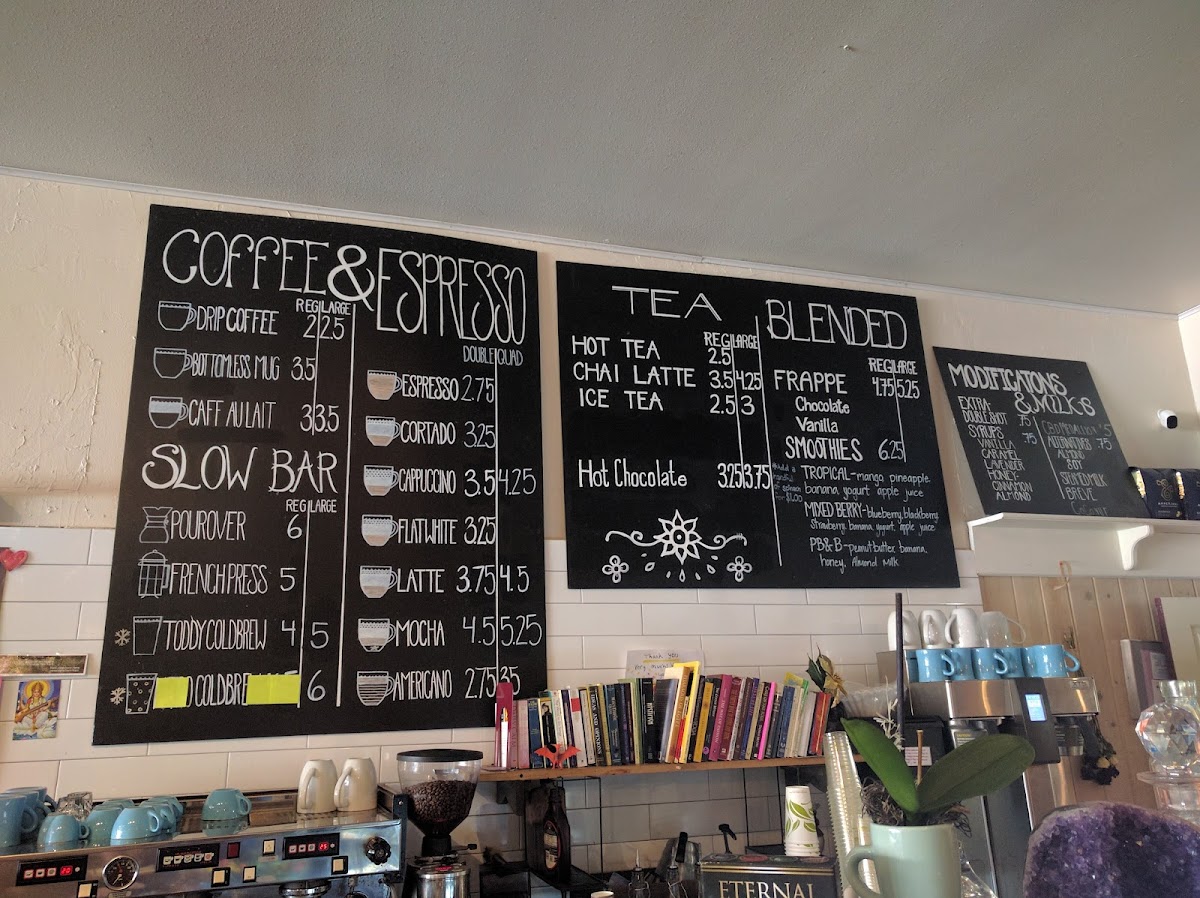 COFFEE & ESPRESSO
REG LARGE
DRIP COFFEE 2 2.5
BOTTOMLESS MUG 3.5
CAFF AU LAIT 3 3.5
SLOW BAR
REG LARGE
POUROVER 6
FRENCH PRESS 5
TODDY COLDBREW 4 5
O COLDBRE 6
DOUBLE QUAD
ESPRESSO 2.75
CORTADO 3.25
CAPPUCCINO 3.5 4.25
FLATWHITE 3.25
LATTE 3.75 4.5
MOCHA 4.5 5.25
AMERICANO 2.75 3.5
TEA
REG LARGE
HOT TEA 2.5
CHAI LATTE 3.5 4.25
ICE TEA 2.5 3
Hot Chocolate 3.25 3.75
BLENDED
REG LARGE
FRAPPE 4.75 5.25
Chocolate
Vanilla
SMOOTHIES 6.25
TROPICAL - mango, pineapple,
banana, yogurt apple juice
MIXED BERRY - blueberry, blackberry
Strawberry, banana, yogurt, apple juice
PB & B - peanut butter, banana,
honey, Almond Milk
MODIFICATONS
& MILKS
EXTRA-
DOUBLE SHOT .75
SYRUPS .75
VANILLA
CARAMEL
LAVENDER
HONEY-
CINNAMON
ALMOND
ALTERNATIVES .75
ALMOND
SOY
STEAMED MILK
BREVE
Thank You
ETERNAL